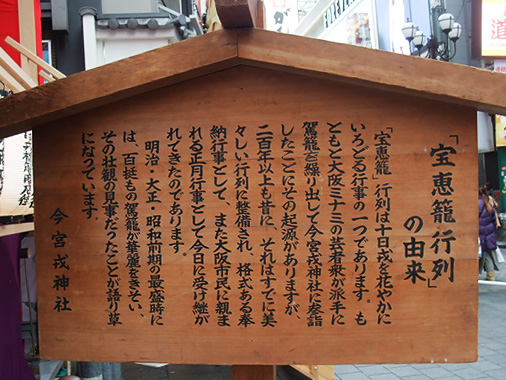 「宝恵籠行列」
の由来
「宝恵籠」行列は十日戎を花やかに
いろどる行事の一つであります。も
ともと大阪ミナミの芸者衆が派手に
駕籠を繰り出して今宮戎神社に参詣
したことにその起源がありますが、
二百年以上も昔に、それはすでに美
々しい行列に整備され、格式ある奉
納行事として、また大阪市民に親ま
れる正月行事として今日に受け継が
れてきたのであります。
明治・大正・昭和前期の最盛時に
は、百挺もの駕籠が華麗をきそい、
その壮観の見事だったことが語り草
になっています。
今宮戎神社
道